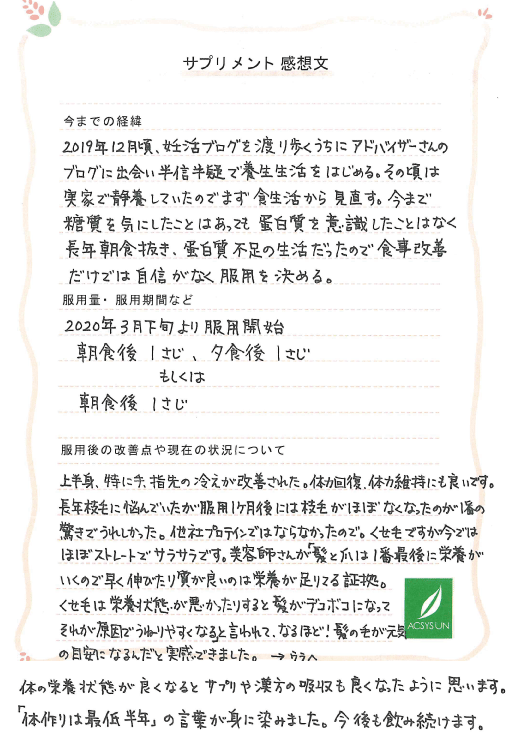 サプリメント感想文
今までの経緯
2019年12月頃、妊活ブログを渡り歩くうちにアドバイザーさんの
ブログに出会い半信半疑で養生生活をはじめる。その頃は
実家で静養していたのでまず食生活から見直す。今まで
糖質を気にしたことはあっても蛋白質を意識したことはなく
長年朝食抜き、蛋白質不足の生活だったので食事改善
だけでは自信がなく服用を決める。
服用量・服用期間など
2020年3月下旬より服用開始
朝食後 1さじ、夕食後 1さじ
もしくは
朝食後 1さじ
服用後の改善点や現在の状況について
上半身、特に手、指先の冷えが改善された。体力回復、体力維持にも良いです。
長年枝毛に悩んでいたが服用1ヶ月後には枝毛がほぼなくなったのが1番の
驚きでうれしかった。他社プロテインではならなかったので。くせ毛ですが今では
ほぼストレートでサラサラです。美容師さんが「髪と爪は1番最後に栄養が
いくので早く伸びたり質が良いのは栄養が足りてる証拠。
くせ毛は栄養状態が悪かったりすると髪がデコボコになって
それが原因でうねりやすくなる」と言われて、なるほど!髪の毛が元気
の目安になるんだと実感できました。 →うらへ
ACSYS UN
体の栄養状態が良くなるとサプリや漢方の吸収も良くなったように思います。
「体作りは最低半年」の言葉が身に染みました。今後も飲み続けます。